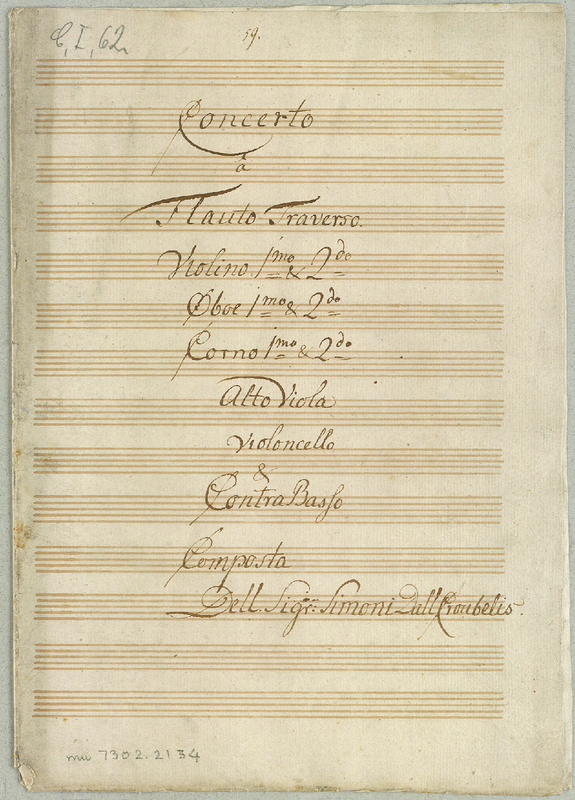 C, I, 62
59.
Concerto
à
Flauto Traverso.
Violino 1mo & 2do
Oboe 1mo & 2do
Corno 1mo & 2do
Alto Viola
Violoncello
&
ContraBasso
Composta
Dell. Sigre: Simoni Dall Croubelis.
mu 7302.2134